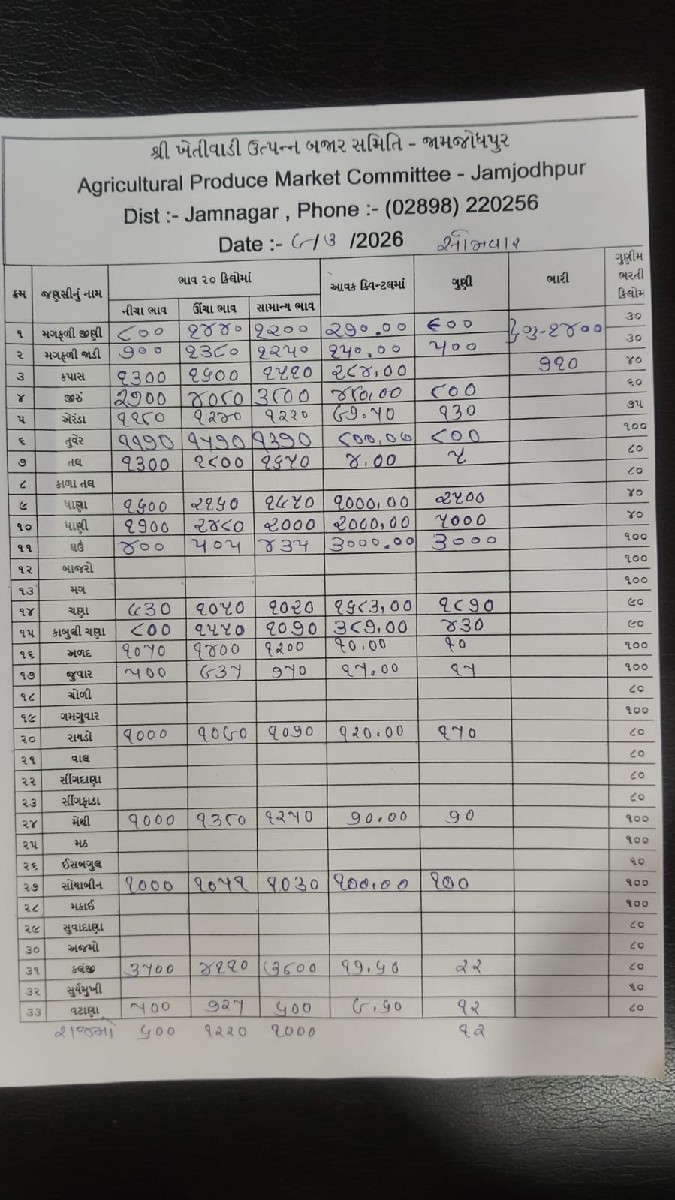 શ્રી ખેતીવાડી ઉત્પન્ન બજાર સમિતિ - જામજોધપુર
Agricultural Produce Market Committee - Jamjodhpur
Dist :- Jamnagar , Phone :- (02898) 220256
Date :- ૯/૩ /2026 સોમવાર
ક્રમ જણસીનું નામ ભાવ ૨૦ કિલોમાં આવક ક્વિન્ટલમાં ગુણી ભારી ગુણીમ ભરતી કિલોમ
નીચા ભાવ ઊંચા ભાવ સામાન્ય ભાવ
૧ મગફળી જીણી ૮૦૦ ૧૪૪૦ ૧૨૦૦ ૨૭૦.૦૦ ૯૦૦ } ગુ-૧૪૦૦ ૩૦
૨ મગફળી જાડી ૭૦૦ ૧૩૮૦ ૧૨૫૦ ૧૫૦.૦૦ ૫૦૦ ૩૦
૩ કપાસ ૧૩૦૦ ૧૬૦૦ ૧૫૨૦ ૨૮૪.૦૦ ૭૧૦ ૪૦
૪ જીરું ૨૭૦૦ ૪૦૮૦ ૩૮૦૦ ૪૮૦.૦૦ ૮૦૦ ૬૦
૫ એરંડા ૧૧૮૦ ૧૨૪૦ ૧૨૨૦ ૯૭.૫૦ ૧૩૦ ૭૫
૬ તુવેર ૧૧૭૦ ૧૫૭૦ ૧૩૭૦ ૮૦૦.૦૦ ૮૦૦ ૧૦૦
૭ તલ ૧૩૦૦ ૧૮૦૦ ૧૬૫૦ ૪.૦૦ ૫ ૮૦
૮ કાળા તલ ૮૦
૯ ધાણા ૧૬૦૦ ૨૧૬૦ ૧૯૫૦ ૧૦૦૦.૦૦ ૨૫૦૦ ૪૦
૧૦ ધાણી ૧૭૦૦ ૨૪૮૦ ૨૦૦૦ ૨૦૦૦.૦૦ ૫૦૦૦ ૪૦
૧૧ ઘઉં ૪૦૦ ૫૦૫ ૪૩૫ ૩૦૦૦.૦૦ ૩૦૦૦ ૧૦૦
૧૨ બાજરો ૧૦૦
૧૩ મગ ૧૦૦
૧૪ ચણા ૯૩૦ ૧૦૫૦ ૧૦૨૦ ૧૬૮૩.૦૦ ૧૮૭૦ ૯૦
૧૫ કાબુલી ચણા ૮૦૦ ૧૫૫૦ ૧૦૭૦ ૩૮૭.૦૦ ૪૩૦ ૯૦
૧૬ અળદ ૧૦૫૦ ૧૪૦૦ ૧૨૦૦ ૧૦.૦૦ ૧૦ ૧૦૦
૧૭ જુવાર ૫૦૦ ૯૩૫ ૭૫૦ ૧૫.૦૦ ૧૫ ૧૦૦
૧૮ ચોળી ૮૦
૧૯ ગમગુવાર ૧૦૦
૨૦ રાયડો ૧૦૦૦ ૧૦૯૦ ૧૦૭૦ ૧૨૦.૦૦ ૧૫૦ ૮૦
૨૧ વાલ ૮૦
૨૨ સીંગદાણા ૮૦
૨૩ સીંગફાડા ૮૦
૨૪ મેથી ૧૦૦૦ ૧૩૮૦ ૧૨૫૦ ૭૦.૦૦ ૭૦ ૧૦૦
૨૫ મઠ ૧૦૦
૨૬ ઈસબગુલ ૬૦
૨૭ સોયાબીન ૧૦૦૦ ૧૦૫૧ ૧૦૩૦ ૧૦૦.૦૦ ૧૦૦ ૧૦૦
૨૮ મકાઈ ૧૦૦
૨૯ સુવાદાણા ૮૦
૩૦ અજમો ૮૦
૩૧ કલંજી ૩૫૦૦ ૪૧૨૦ ૩૮૦૦ ૧૭.૬૦ ૨૨ ૮૦
૩૨ સુર્યમુખી ૬૦
૩૩ વટાણા ૫૦૦ ૭૨૫ ૬૦૦ ૯.૬૦ ૧૨ ૮૦
રાજમાં ૬૦૦ ૧૨૨૦ ૧૦૦૦ ૧૨